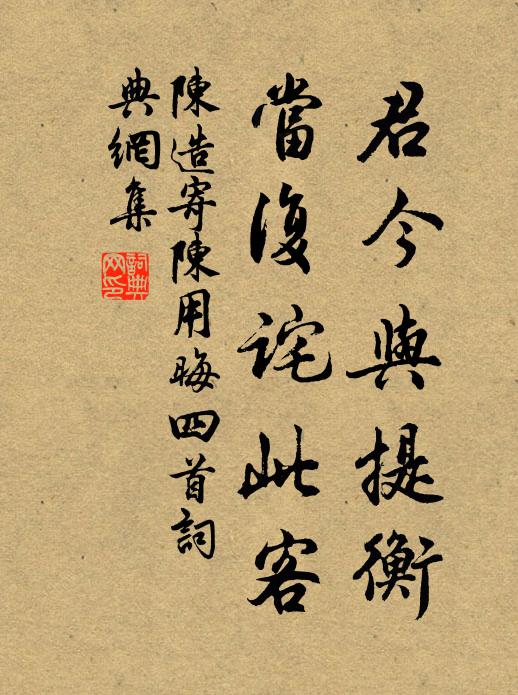 君今與提衡
當復詫此客
陳造寄陳用晦四首詞
典網集
詞典
网印